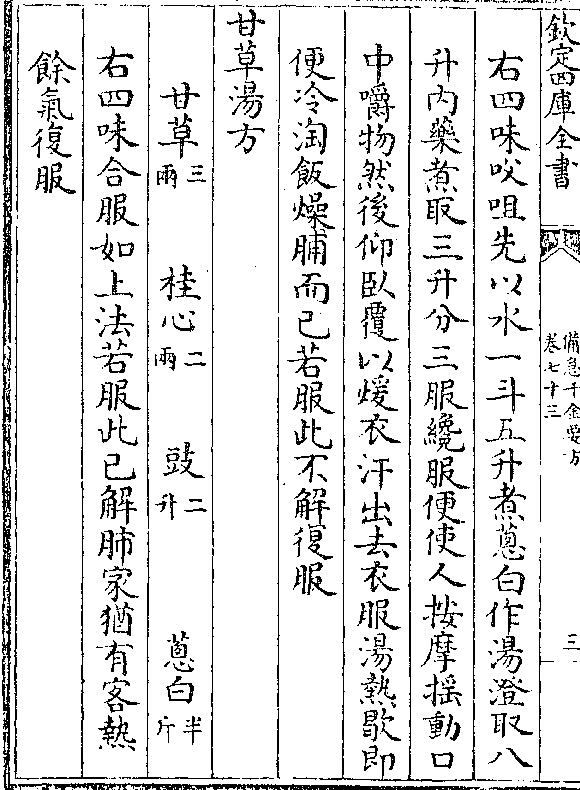 欽定四庫全書
備急千金要方
卷七十三
三
右四味㕮咀先以水一斗五升煮蔥白作湯澄取八
升内藥煮取三升分三服纔服便使人按摩揺動口
中嚼物然後仰臥覆以煖衣汗出去衣服湯熱歇即
便冷淘飯燥脯而已若服此不解復服
甘草湯方
甘草三兩 桂心二兩 豉二升 蔥白半斤
右四味合服如上法若服此已解肺家猶有客熱
餘氣復服